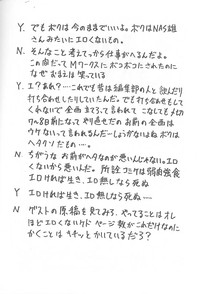 Y. でもボクは今のままでいいよ。ボクはNAS雄
さんみたいにエロくないもの。
N. そんなこと考えてっから仕事がへるんだよ。
この前だってMワークスにボコボコたされたのに
なぜおまえは笑っている
Y. エ？あれ？…これでも昔は編集部の人と飲んだり
打ち合わせしたりしていたんだ。でも打ち合わせもして
くれないで企画まてろって言われてこなしても〆切
りの2日前になってやり逃せだのお前の企画は
ウケないって言われるんだーしょうがないよねボクは
ヘタクソだもの…。
N. ちがうな お前がヘタなのが悪いんじゃない。エロ
くないから悪いんだ。所詮コミケは弱肉強食
エロければ生き、エロ無しなら死ぬ
Y エロければ生き、エロ無しなら死ぬ…
N ゲストの原稿を見てみろ。やってることはオレ
ほどエロくないけどページ数がこれだけなのに
かくことはキチッとかいているだろ？